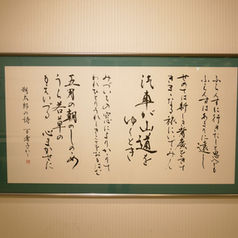 ふらんすへ行きたしと思へども
ふらんすはあまりに遠し
せめては新しき背広をきて
きままなる旅にいでてみん
汽車が山道を
ゆくとき
みづいろの窓によりかかりて
われひとりうれしきことをおもはむ
五月の朝のしののめ
うら若草の
もえいづる 心まかせに
朔太郎の詩